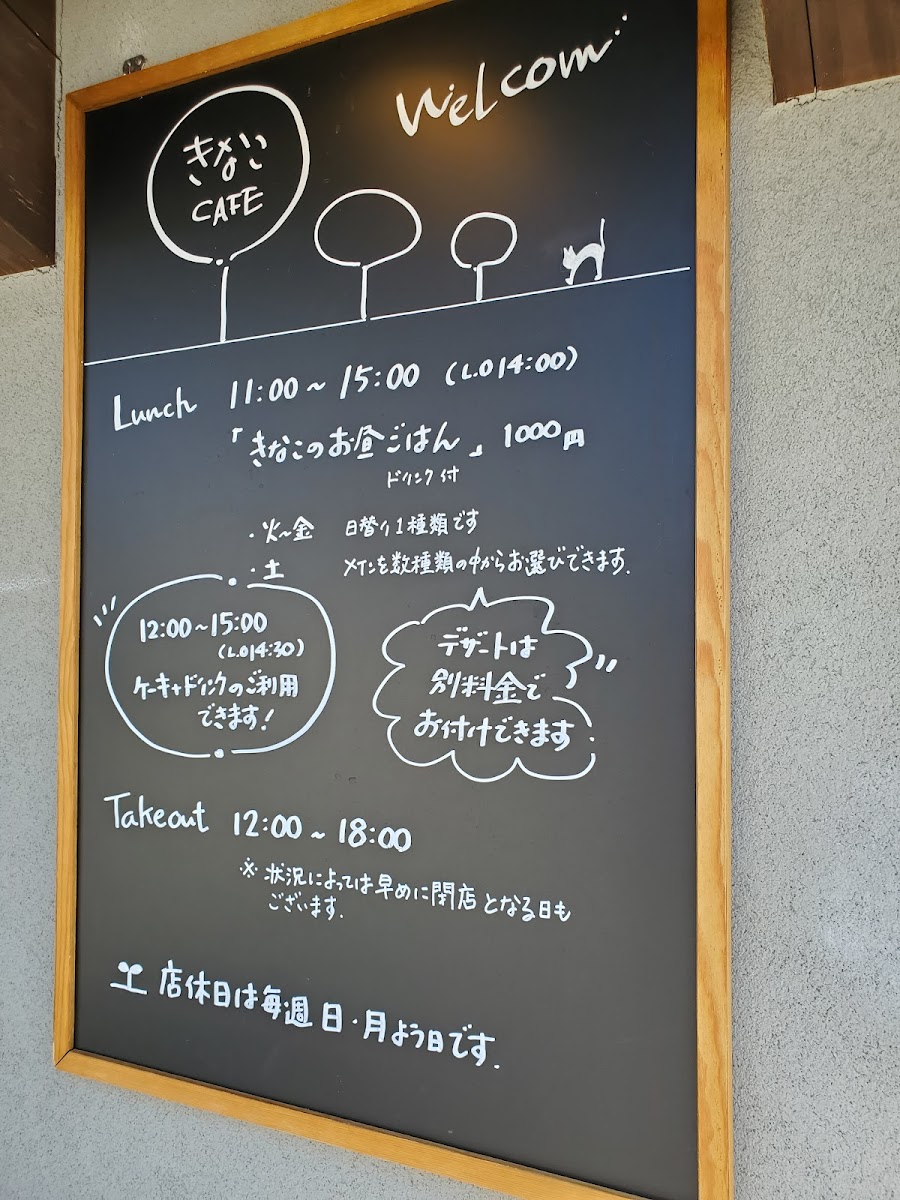 Welcom
きなこ
CAFE
Lunch 11:00～15:00 (L.O14:00)
「きなこのお昼ごはん」1000円
ドリンク付
・火～金 日替り1種類です
・土 メインを数種類の中からお選びできます.
12:00～15:00
(L.O14:30)
ケーキ+ドリンクのご利用
できます!
デザートは
別料金で
お付けできます
Takeout 12:00～18:00
※状況によっては早めに閉店となる日も
ございます.
店休日は毎週日・月よう日です.